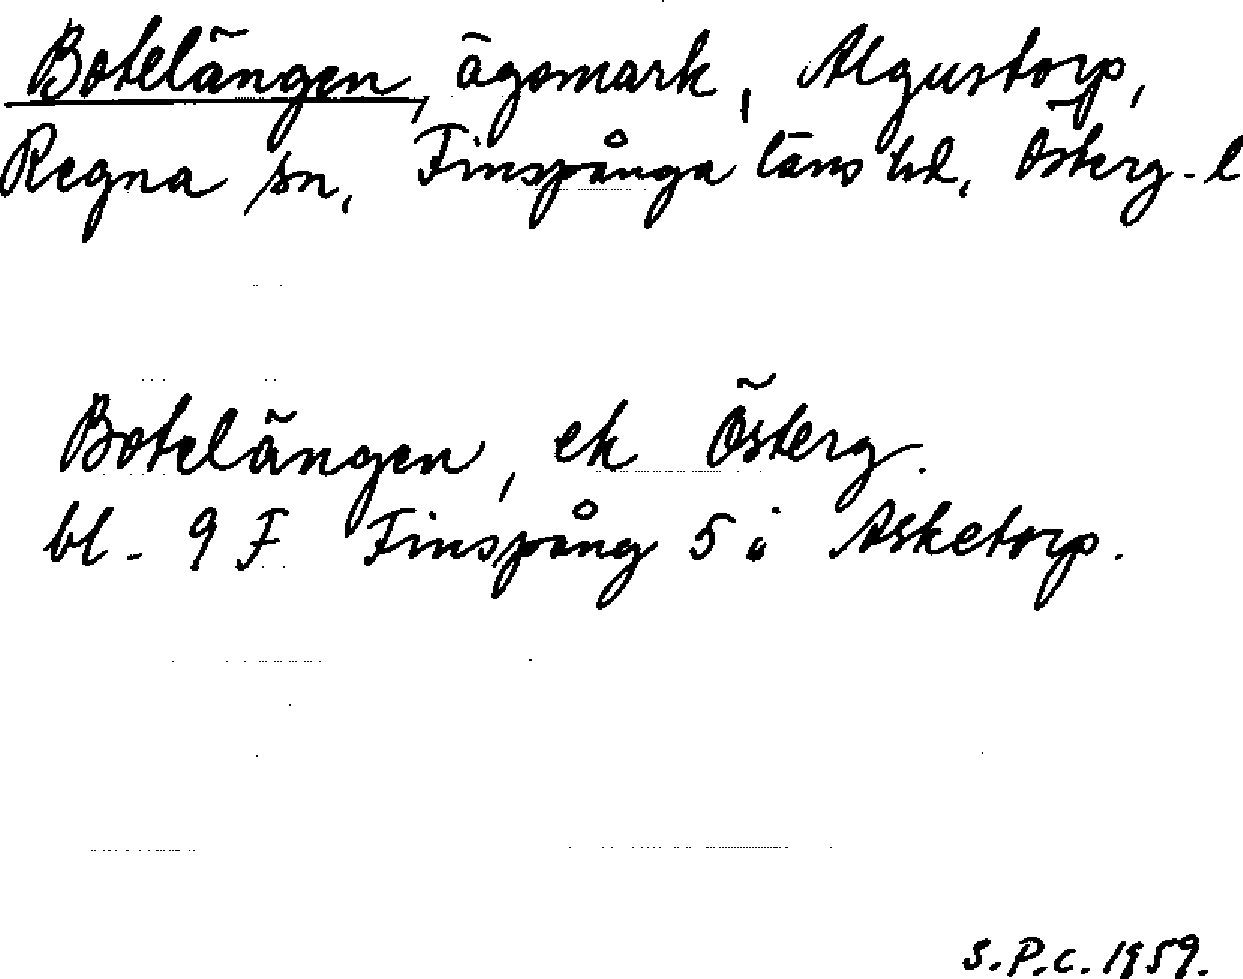 Botelängen, ägomark, Algustorp,
Regna sn, Finspånga läns hd, Österg-l
Botelängen, ek Österg.
bl- 9 F Finspång 5 i Asketorp.
S.P.C. 1959.